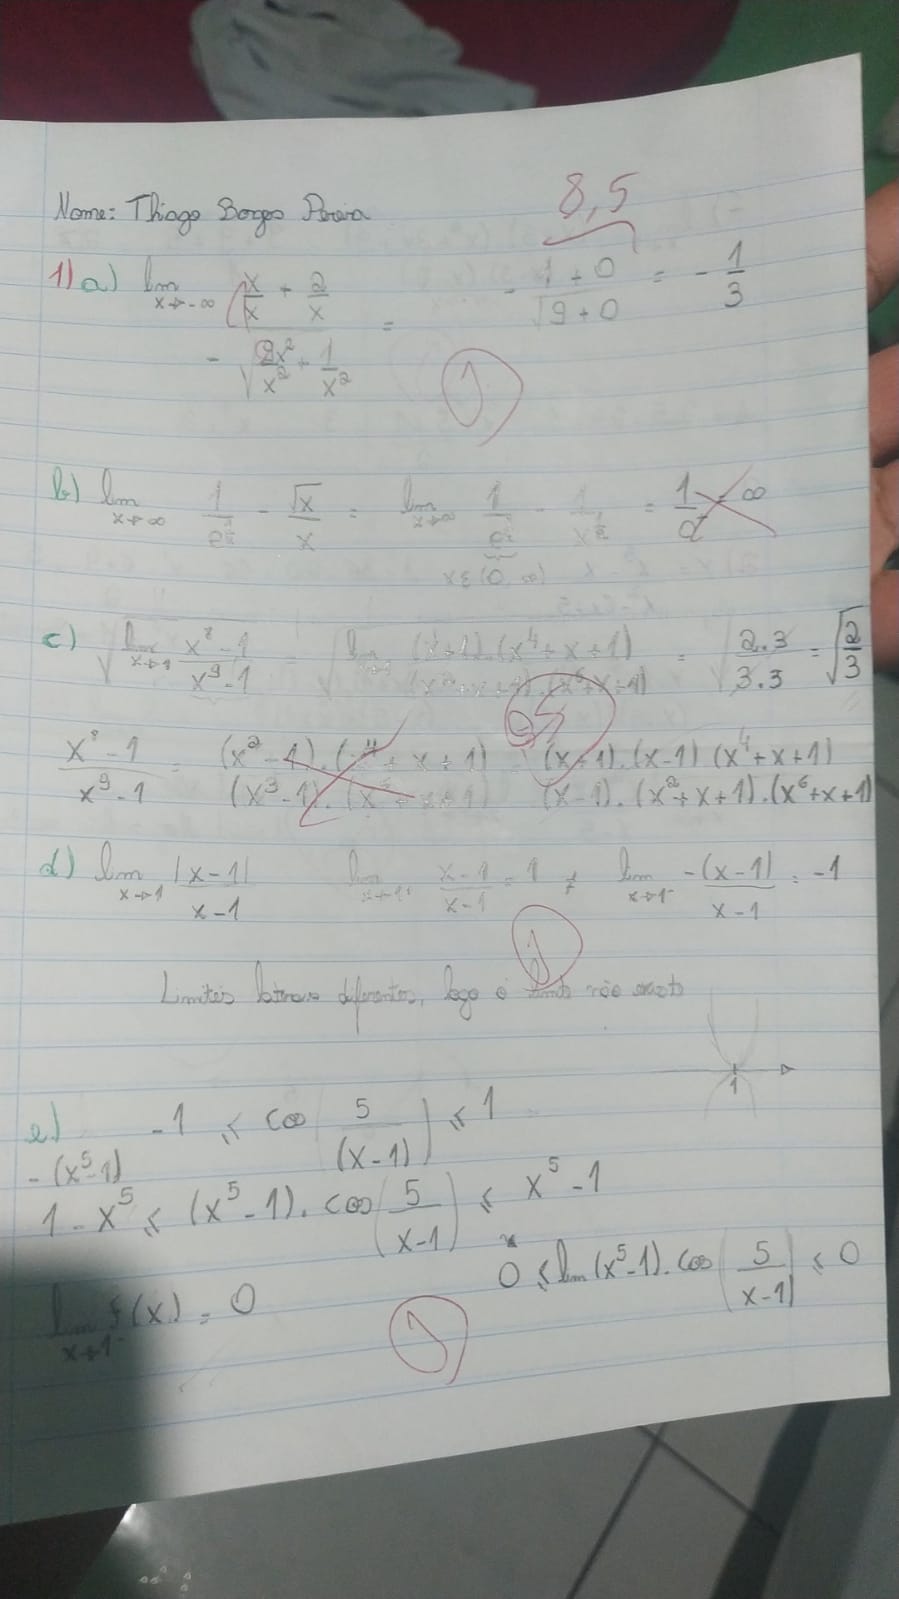 Nome: Thiago Borges Pereira
8,5
1) a) lim x→-∞ (x/x + 2/x) / -√(9x²/x² + 1/x²) = - (1+0)/√(9+0) = -1/3
1
b) lim x→∞ - √x/x = lim x→∞ = 1/ = ∞
c) √(lim x→1 (x⁸-1)/(x⁹-1)) = √(lim (x+1).(x⁴+x+1) / ) = √(2.3/3.3) = √(2/3)
0,5
(x⁸-1)/(x⁹-1) = (x²-1).(x⁴+x+1) / (x³-1).(x⁶+x+1) = (x+1).(x-1)(x⁴+x+1) / (x-1).(x²+x+1).(x⁶+x+1)
d) lim x→1 |x-1|/(x-1) lim x→1⁺ (x-1)/(x-1) = 1 ≠ lim x→1⁻ -(x-1)/(x-1) = -1
1
Limites laterais diferentes, logo o limite não existe
1
e) -1 ≤ cos(5/(x-1)) ≤ 1
-(x⁵-1)
1-x⁵ ≤ (x⁵-1).cos(5/(x-1)) ≤ x⁵-1
0 ≤ lim (x⁵-1).cos(5/(x-1)) ≤ 0
lim x→1 f(x) = 0
1